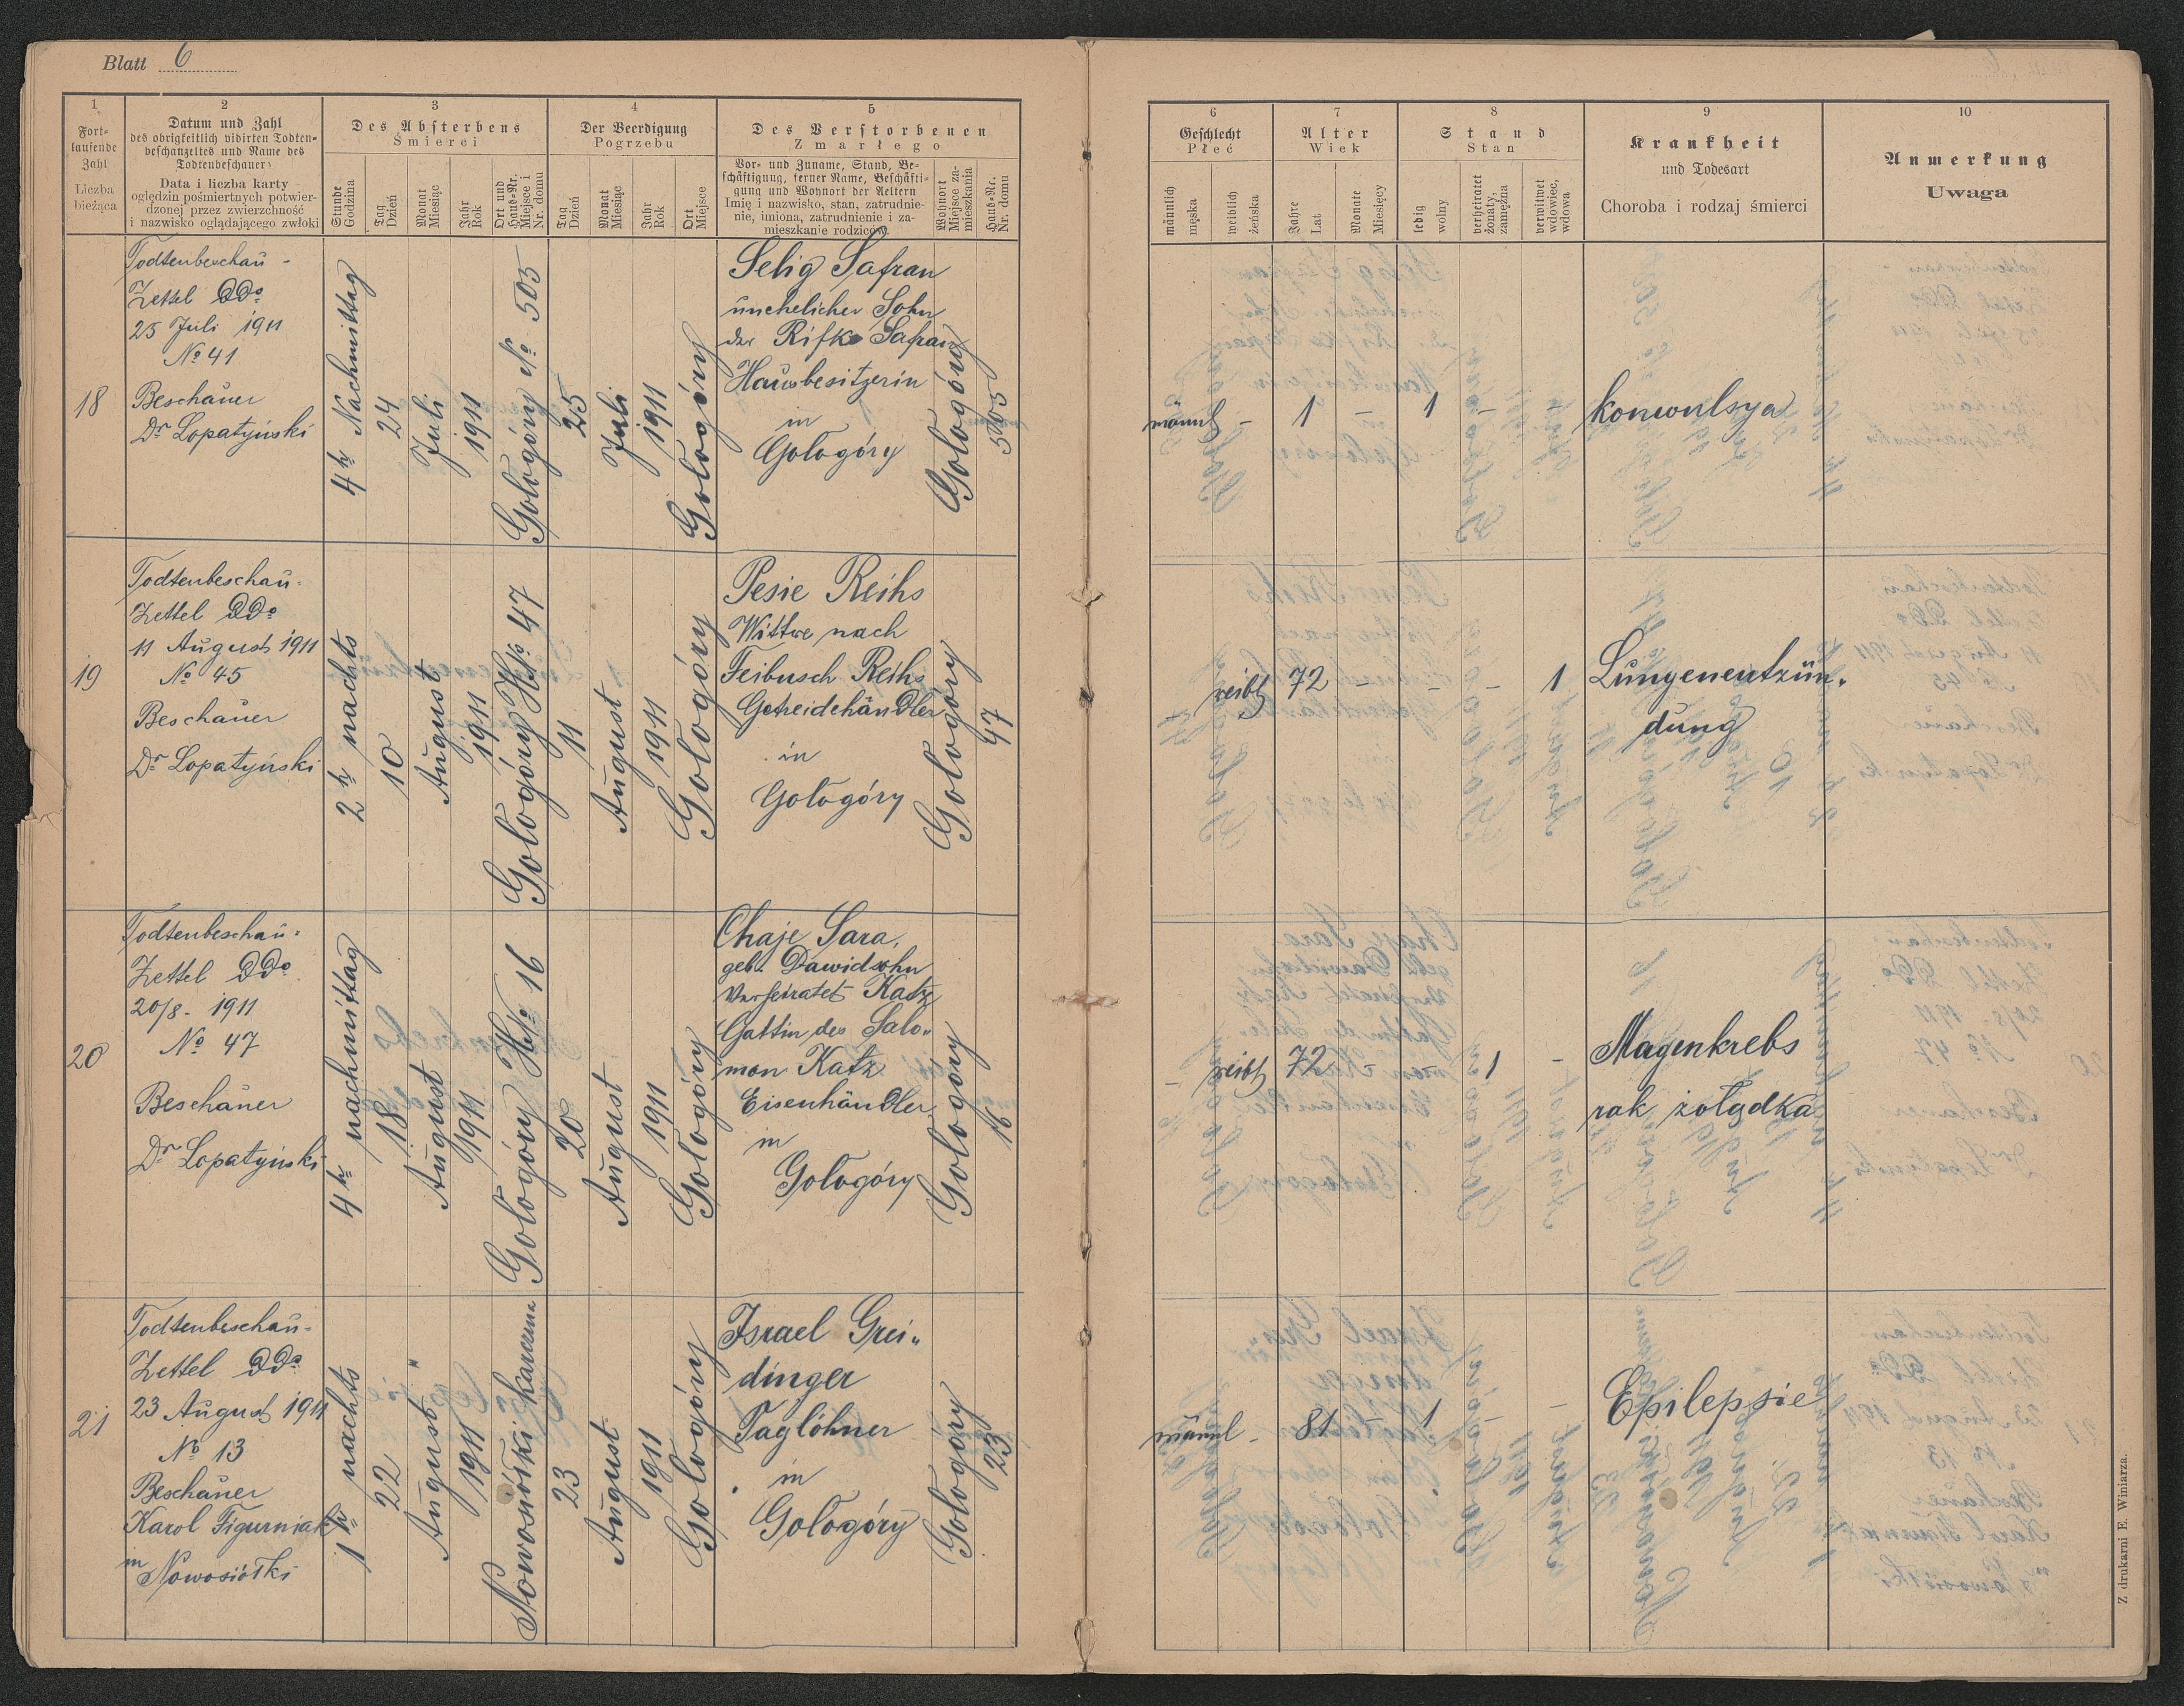 Blatt 6
1
Fort-
laufende
Zahl
Liczba
bieżąca
2
Datum und Zahl
des obrigkeitlich vidirten Todten-
beschauzeltes und Name des
Todtenbeschauers
Data i liczba karty
oględzin pośmiertnych potwier-
dzonej przez zwierzchność
i nazwisko oglądającego zwłoki
3
Des Absterbens
Śmierci
Stunde
Godzina
Tag
Dzień
Monat
Miesiąc
Jahr
Rok
Ort und
Haus-Nr.
Miejsce i
Nr. domu
4
Der Beerdigung
Pogrzebu
Tag
Dzień
Monat
Miesiąc
Jahr
Rok
Ort
Miejsce
5
Des Verstorbenen
Zmarłego
Vor- und Zuname, Stand, Be-
schäftigung, ferner Name, Beschäfti-
gung und Wohnort der Aeltern
Imię i nazwisko, stan, zatrudnie-
nie, imiona, zatrudnienie i za-
mieszkanie rodziców
Wohnort
Miejsce za-
mieszkania
Haus-Nr.
Nr. domu
6
Geschlecht
Płeć
männlich
męska
weiblich
żeńska
7
Alter
Wiek
Jahre
Lat
Monate
Miesięcy
8
Stand
Stan
ledig
wolny
verheiratet
żonaty,
zamężna
verwitwet
wdowiec,
wdowa
9
Krankheit
und Todesart
Choroba i rodzaj śmierci
10
Anmerkung
Uwaga
18
Todtenbeschau-
Zettel DDo
25 Juli 1911
No 41
Beschauer
Dr Lopatyński
4 h Nachmittag
24
Juli
1911
Gołogóry No 505
25
Juli
1911
Gołogóry
Selig Safran
unehelicher Sohn
der Rifke Safran
Hausbesitzerin
in
Gołogóry
Gołogóry
505
männl - 1 - 1 - -
konwulsya
19
Todtenbeschau-
Zettel DDo
11 August 1911
No 45
Beschauer
Dr Lopatyński
2 h nachts
10
August
1911
Gołogóry HNo 47
11
August
1911
Gołogóry
Pesie Reihs
Wittwe nach
Feibusch Reihs
Getreidehändler
in
Gołogóry
Gołogóry
47
weibl 72 - - - 1
Lungenentzün-
dung
20
Todtenbeschau-
Zettel DDo
20/8 - 1911
No 47
Beschauer
Dr Lopatyński
4 h nachmittag
18
August
1911
Gołogóry HNo 16
20
August
1911
Gołogóry
Chaje Sara,
geb. Dawidsohn
verheiratet Katz
Gattin des Salo-
mon Katz
Eisenhändler
in
Gołogóry
Gołogóry
16
- weibl 72 - - 1 -
Magenkrebs
rak żołądka
21
Todtenbeschau-
Zettel DDo
23 August 1911
No 13
Beschauer
Karol Figurniak
in
Nowosiółki
1 h nachts
22
August
1911
Nowosiółki
23
August
1911
Gołogóry
Israel Grei-
dinger
Taglöhner
in
Gołogóry
Gołogóry
23
männl - 81 - 1 - -
Epilepsie
Z drukarni E. Winiarza.